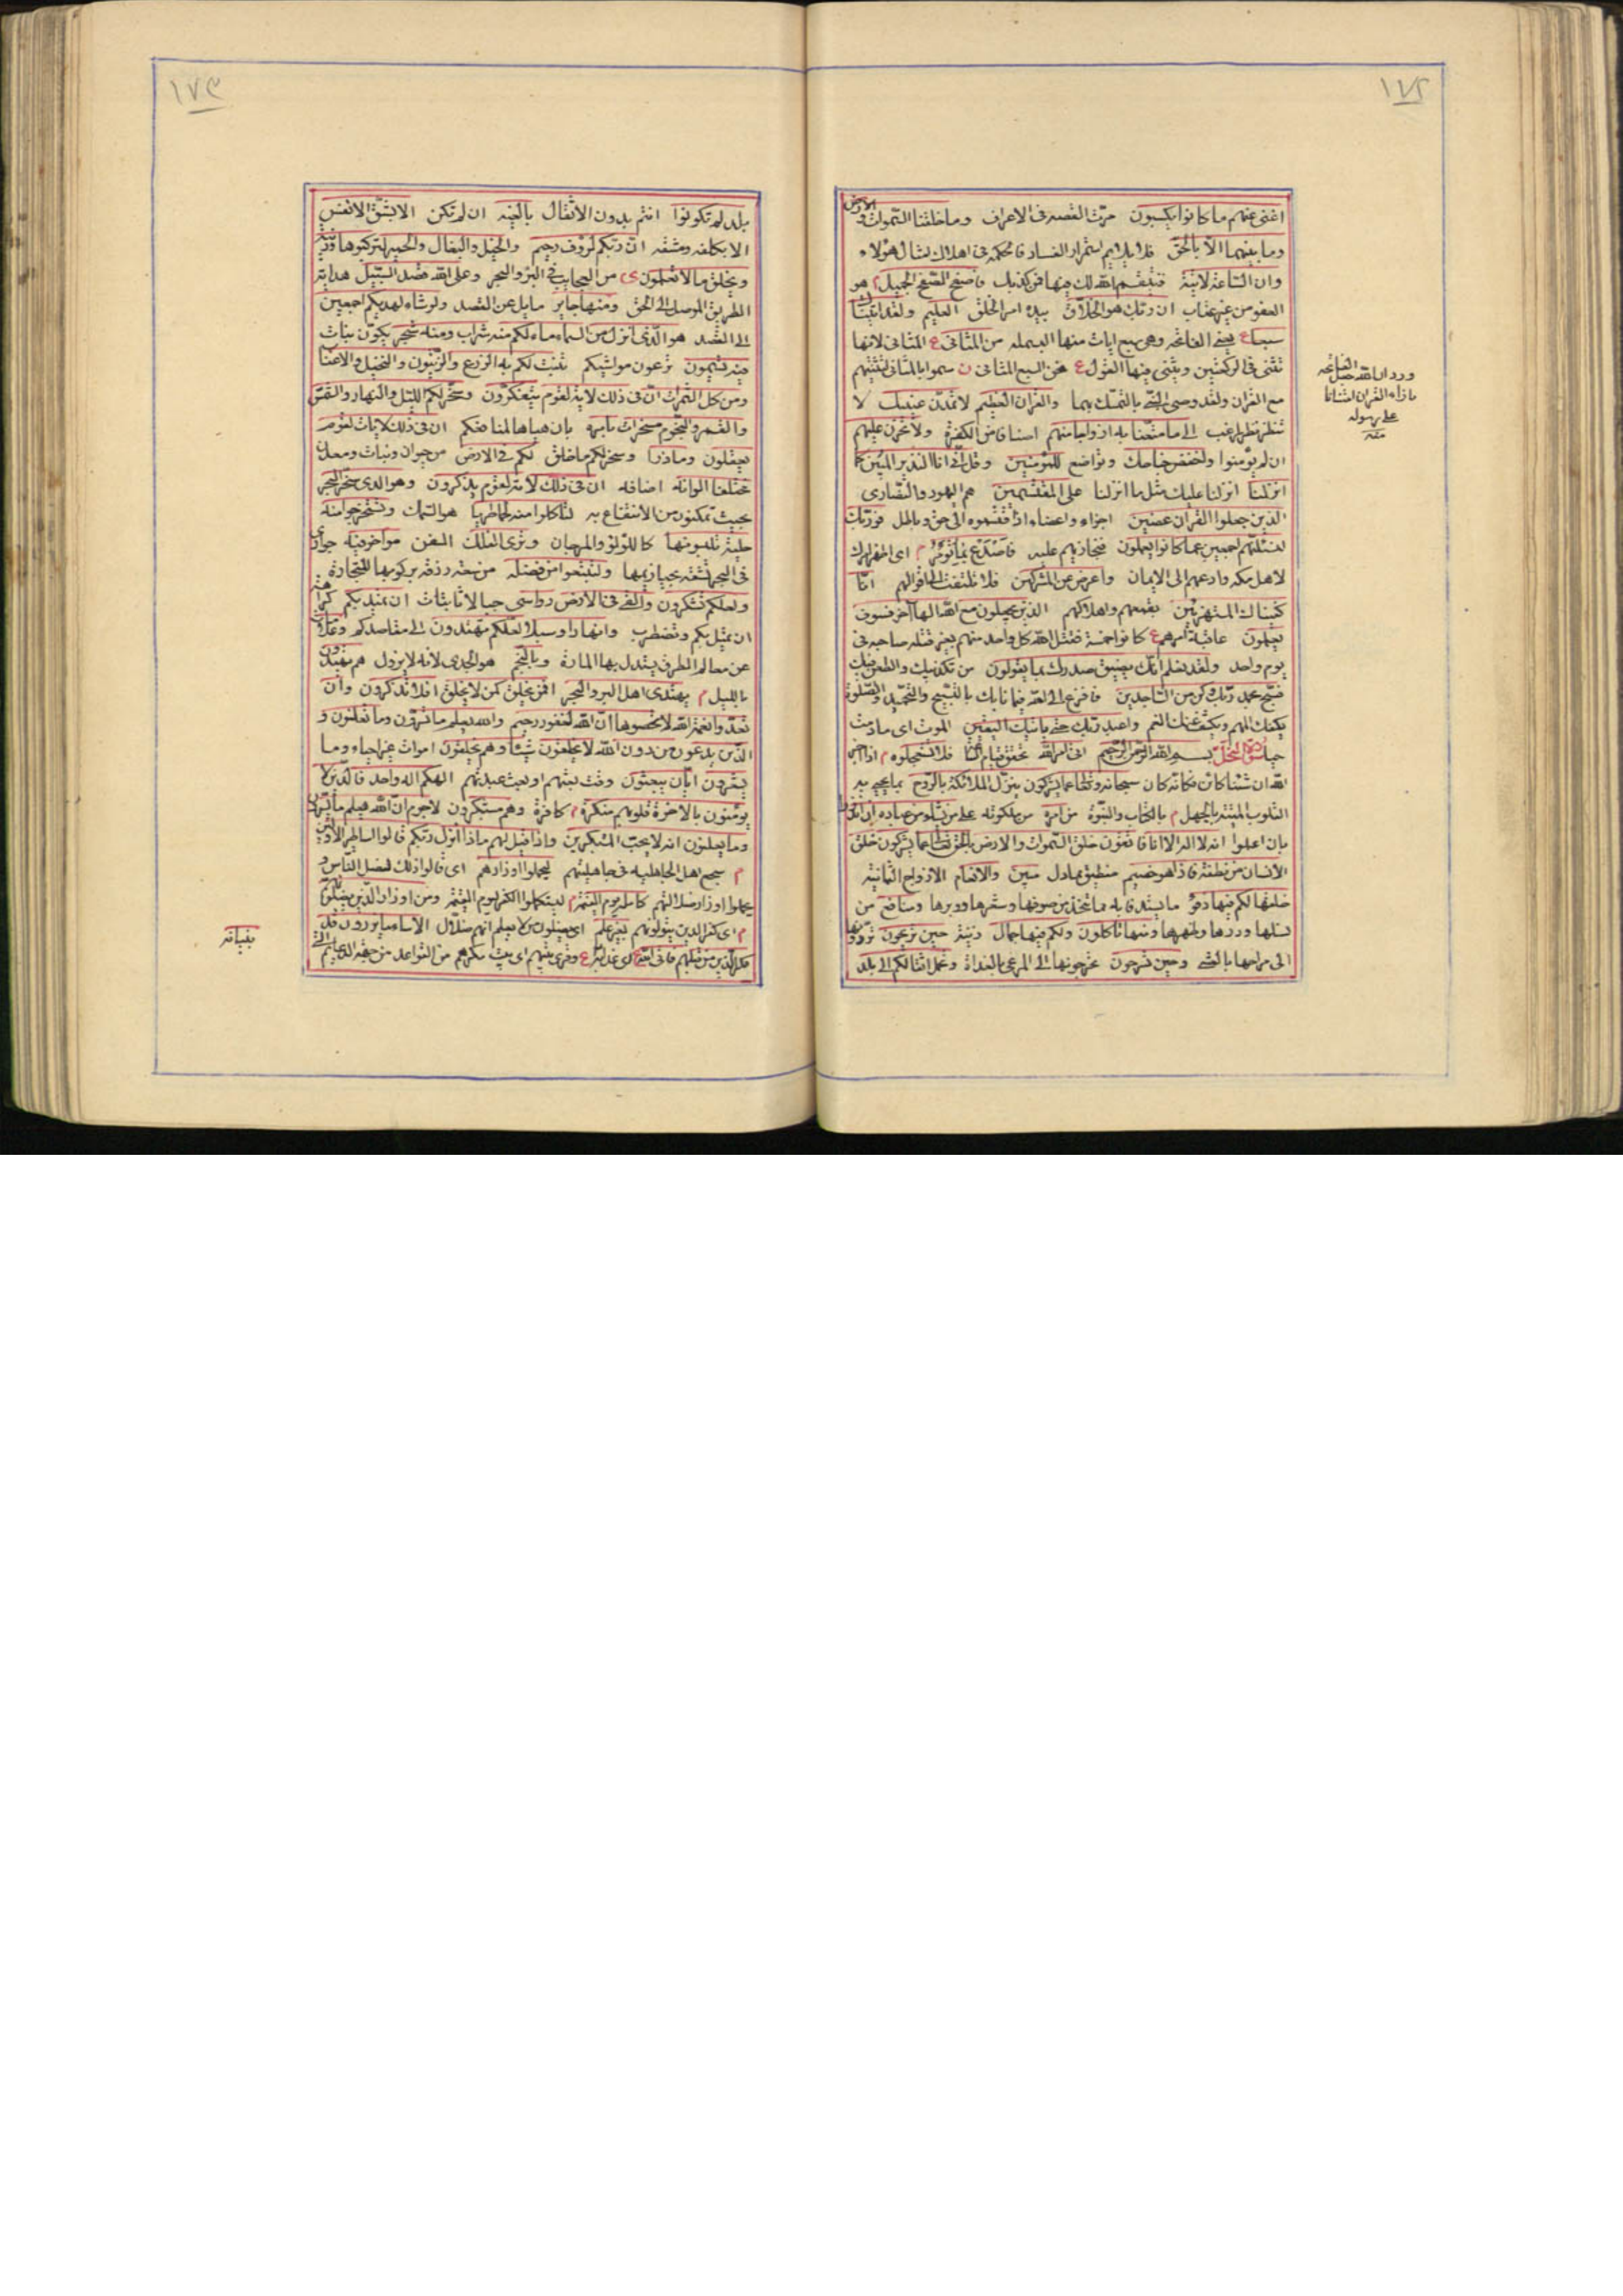 ١٧٢
اغنى عنهم ما كانوا يكسبون مرّت القصه فى الاعراف وما خلقنا السّموات و
الارض
وما بينهما الّا بالحقّ فلا يلايم استمرار الفساد فالحكمة فى اهلاك امثال هؤلاء
وان السّاعة لاتية فينتقم الله لك فيها ممن كذبك فاصفح الصّفح الجميل هو
العفو من غير عتاب ان ربّك هو الخلّاق بيده امر الخلق العليم ولقد اتيناك
سبعا ع يعنى الفاتحه وهى سبع ايات منها البسمله من المثانى ع المثانى لانها
تثنى فى الركعتين ويثنى فيها القول ع نحن السبع المثانى ن سموا بالمثانى لتثنيتهم
مع القران ولقد وصى النبى بالتمسّك بهما والقران العظيم لا تمدّنّ عينيك لا
تنظر نظر راغب الى ما متّعنا به ازواجا منهم اصنافا من الكفرة ولا تحزن عليهم
ان لم يؤمنوا واخفض جناحك وتواضع للمؤمنين وقل انّى انا النذير المبين كما
انزلنا انزلنا عليك مثل ما انزلنا على المقتسمين هم اليهود والنّصارى
الذين جعلوا القران عضين اجزاء واعضاء اذ قسموه الى حق وباطل فوربّك
لنسئلنّهم اجمعين عما كانوا يعملون فنجازيهم عليه فاصدع بما تؤمر م اى اظهر امرك
لاهل مكه وادعهم الى الايمان واعرض عن المشركين فلا تلتفت الى اقوالهم انّا
كفيناك المستهزئين بقمعهم واهلاكهم الذين يجعلون مع الله الها آخر فسوف
يعلمون عاقبة امرهم ع كانوا خمسة فقتل الله كل واحد منهم بغير قتله صاحبه فى
يوم واحد ولقد نعلم انّك يضيق صدرك بما يقولون من تكذيبك والطعن فيك
فسبّح بحمد ربّك وكن من السّاجدين فافزع الى الله فيما نابك بالتّسبيح والتّحميد والصّلوة
يكفك المهم ويكشف عنك الغم واعبد ربّك حتى ياتيك اليقين الموت اى ما دمت
حيا سورة النحل بسم الله الرّحمن الرّحيم اتى امر الله فلا تستعجلوه م اذا اخبر
الله ان شيئا كائن فكانّه كان سبحانه وتعالى عما يشركون ينزّل الملائكة بالرّوح بما يحيى به
القلوب الميتة بالجهل م بالكتاب والنبّوة من امره من ملكوته على من يشاء من عباده ان انذروا
بان اعلموا انه لا اله الا انا فاتقون خلق السّموات والارض بالحقّ تعالى عما يشركون خلق
الانسان من نطفة فاذا هو خصيم منطيق مجادل مبين والانعام الازواج الثمانية
خلقها لكم فيها دفؤ ما يستدفا به مما يتخذ من صوفها وشعرها ووبرها ومنافع من
نسلها ودرها وظهرها ومنها تاكلون ولكم فيها جمال زينة حين تريحون تردّونها
الى مراحها بالعشى وحين تسرحون تخرجونها الى المرعى بالغداة وتحمل اثقالكم الى بلد
بازاء القران
على رسوله
منه
١٧٣
بلد لم تكونوا انتم بدون الاثقال بالغيه ان لم تكن الا بشقّ الانفس
الا بكلفه ومشقه انّ ربّكم لرؤف رحيم والخيل والبغال والحمير لتركبوها وزينة
ويخلق ما لا تعلمون ى من العجايب فى البرّ والبحر وعلى الله قصد السّبيل هداية
الطريق الموصل الى الحق ومنها جاير مايل عن القصد ولو شاء لهديكم اجمعين
الى القصد هو الّذى انزل من السّماء ماء لكم منه شراب ومنه شجر يكوّن نبات
فيه تسيمون ترعون مواشيكم ينبت لكم به الزرع والزّيتون والنّخيل والاعناب
ومن كلّ الثمرات انّ فى ذلك لاية لقوم يتفكّرون وسخّر لكم اللّيل والنهار والشمس
والقمر والنجوم مسخرات بامره بان هياها لمنافعكم ان فى ذلك لايات لقوم
يعقلون وماذرا وسخر لكم ما خلق لكم فى الارض من حيوان ونبات ومعدن
مختلفا الوانه اصنافه ان فى ذلك لاية لقوم يذكرون وهو الذى سخّر البحر
بحيث تمكنون من الانتفاع به لتاكلوا منه لحما طريا هو السّمك وتستخرجوا منه
حلية تلبسونها كاللؤلؤ والمرجان وترى الفلك السفن مواخر فيه جوارى
فى البحر تشقه بحيازيمها ولتبتغوا من فضله من سعة رزقه بركوبها للتجارة
ولعلكم تشكرون والقى فى الارض رواسى جبالا ثابتات ان تميد بكم كراهة
ان تميل بكم وتضطرب وانهارا وسبلا لعلّكم تهتدون الى مقاصدكم وعلامات
عن معالم الطرق يستدل بها المارة وبالنجم هو الجدى لانه لا يزول هم يهتدون
بالليل م يهتدى اهل البر والبحر افمن يخلق كمن لا يخلق افلا تذكرون وان
تعدّوا نعمة الله لا تحصوها انّ الله لغفور رحيم والله يعلم ما تسرّون وما تعلنون و
الّذين يدعون من دون الله لا يخلقون شيئا وهم يخلقون اموات غير احياء وما
يشعرون ايّان يبعثون وقت بعثهم او بعث عبدتهم الهكم اله واحد فالّذين لا
يؤمنون بالاخرة قلوبهم منكرة م كافرة وهم مستكبرون لا جرم انّ الله يعلم ما يسرّون
وما يعلنون انه لا يحبّ المستكبرين واذا قيل لهم ماذا انزل ربّكم قالوا اساطير الاوّلين
م سجع اهل الجاهلية فى جاهليتهم ليحملوا اوزارهم اى قالوا ذلك ليضل النّاس و
يحملوا اوزار ضلالتهم كاملة يوم القيمة م ليستكملوا الكفر يوم القيمة ومن اوزار الّذين يضلّونهم
م اى كفر الذين يتولونهم بغير علم اى يضلّون من لا يعلم انهم ضلّال الا ساء ما يزرون قد
مكر الّذين من قبلهم فاتى الله بنيانهم اى من القواعد من جهة الدعايم الّتى